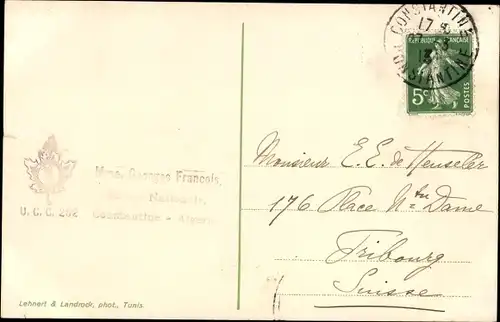 CONSTANTINE
17
13
CONSTANTINE
REPUBLIQUE FRANÇAISE
5c
POSTES
Mme. Georges François,
Nationale,
U. C. C. 262
Constantine - Algérie
Monsieur E. E. de Heuseler
176 Place Ntre Dame
Fribourg
Suisse
Lehnert & Landrock, phot., Tunis.